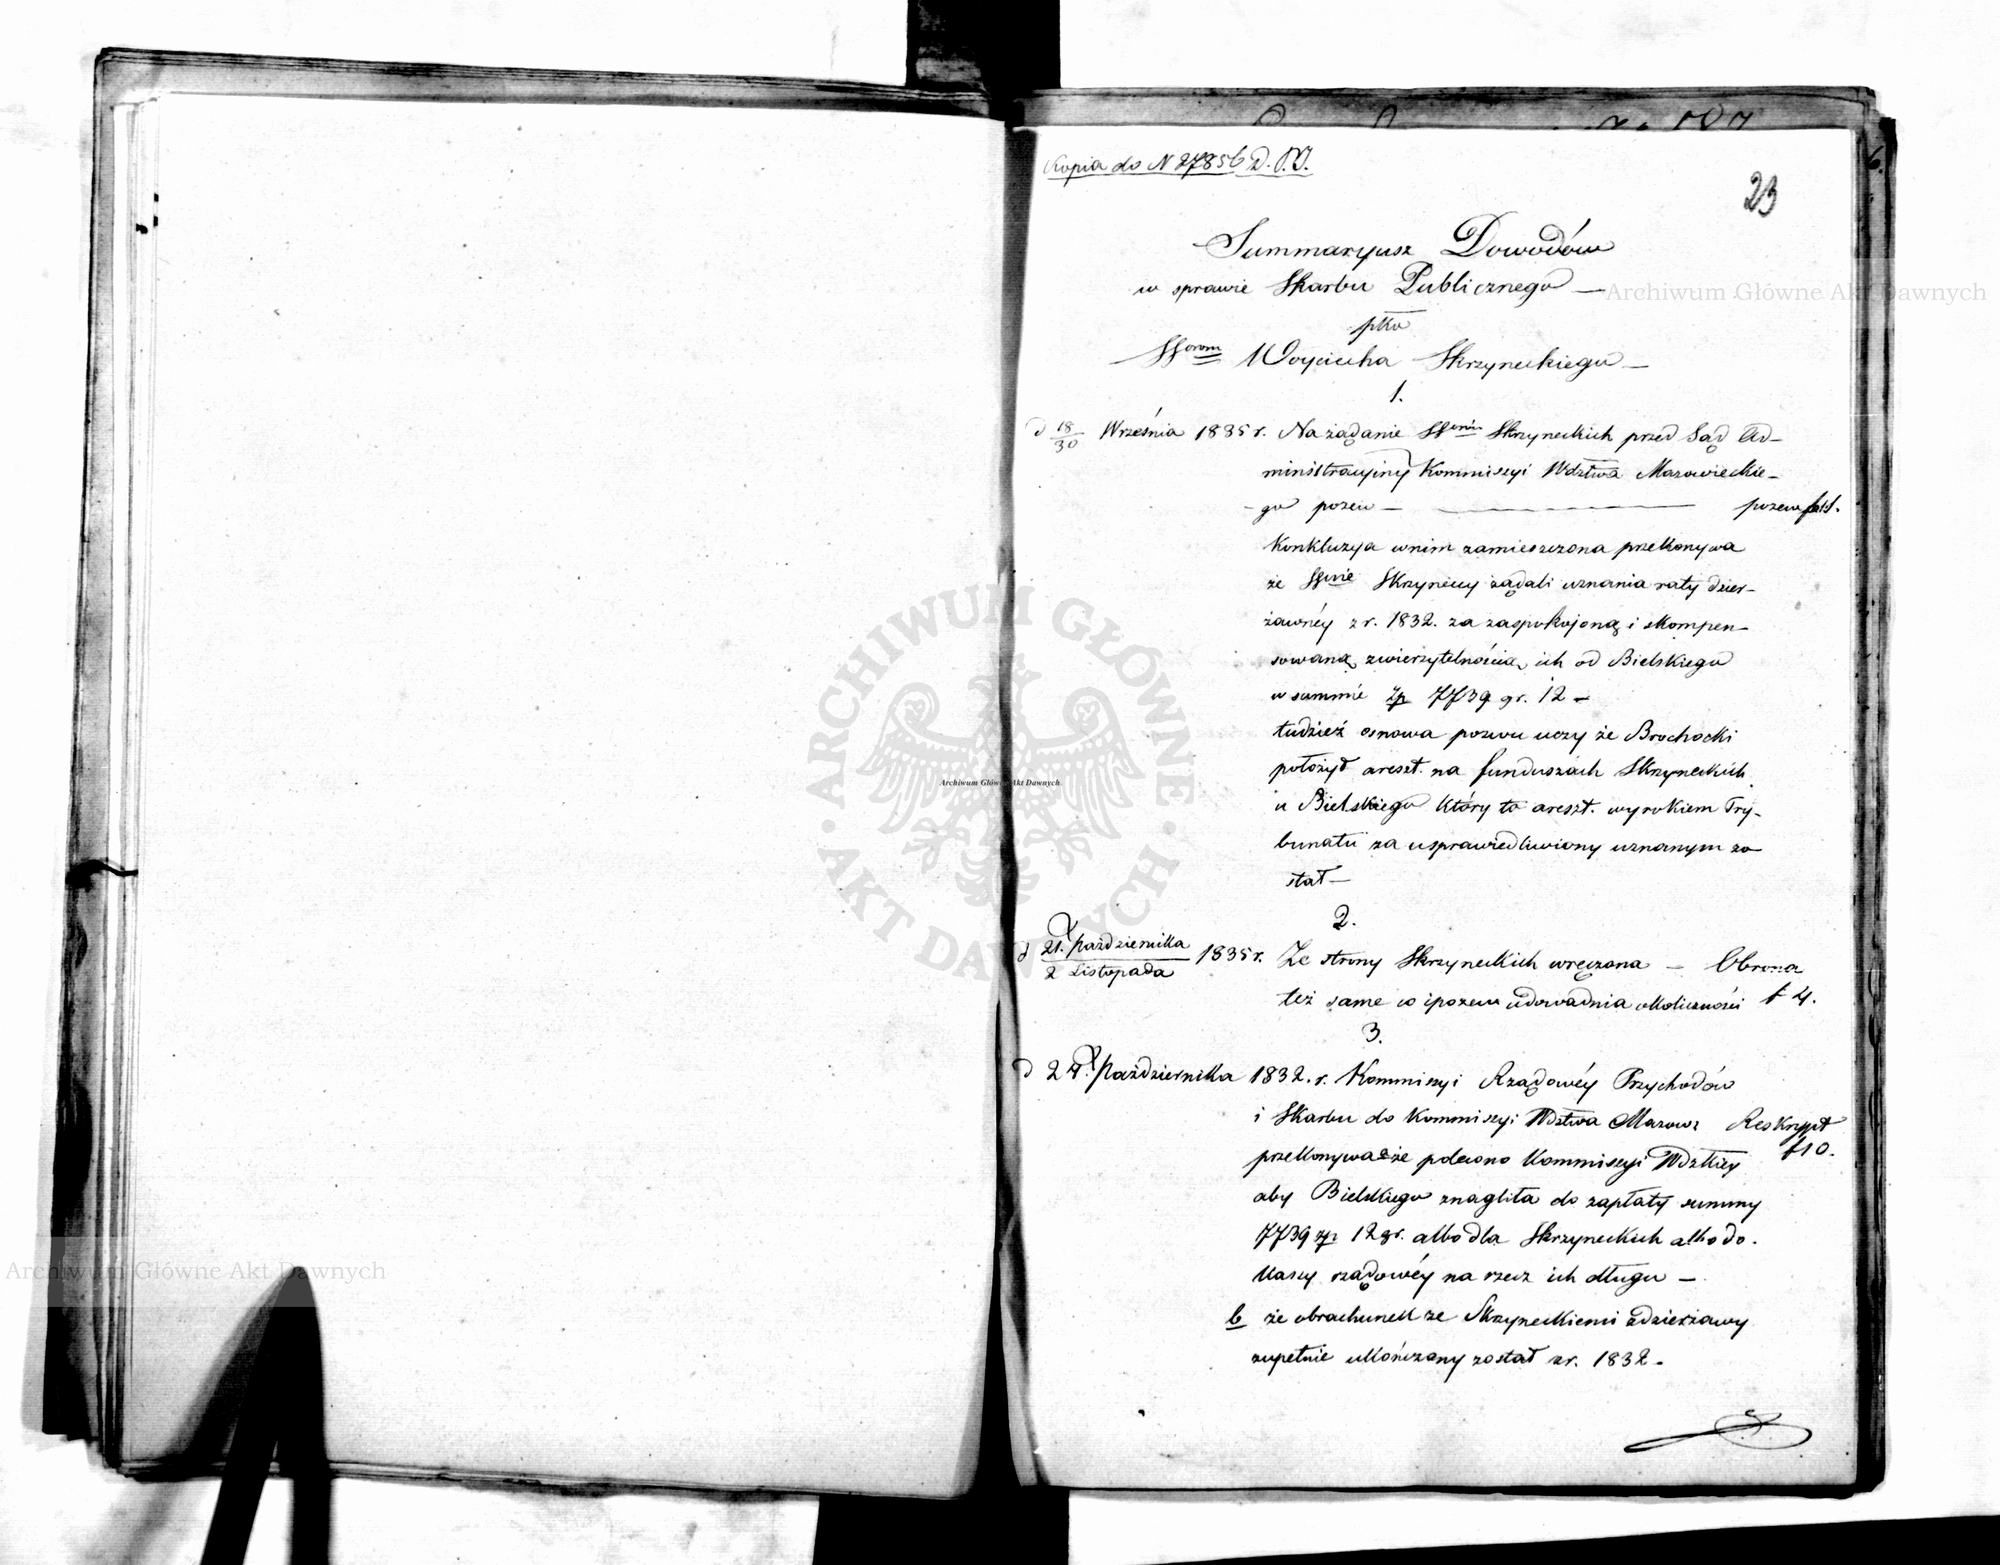 Kopia do N 27856 D.
23
Summaryusz Dowodów
w sprawie Skarbu Publicznego —
ptko
SSorom Woyciecha Skrzyneckiego —
1.
d 18/30 Września 1835 r. Na żądanie SSorów Skrzyneckich przed Sąd Ad-
ministracyjny Kommissyi Wdztwa Mazowieckie-
- go pozew — pozew
Konkluzya wnim zamieszczona przekonywa
że SSwie Skrzyneccy żądali uznania raty dzier-
żawnéy z r. 1832. za zaspokojoną i skompen-
sowaną zwierzytelnością ich od Bielskiego
w summie zp 7739 gr. 12 —
tudzież osnowa pozwu uczy że Brochocki
położył areszt. na funduszach Skrzyneckich
u Bielskiego który to areszt. wyrokiem Try-
bunału za usprawiedliwiony uznanym zo
stał —
2.
d 21. Października / 2 Listopada 1835 r. Ze strony Skrzyneckich wręczona — Obrona
też same co i pozew udowadnia okoliczności f 4.
3.
d 24. Października 1832. r. Kommissyi Rządowéy Przychodów
i Skarbu do Kommissyi Wdztwa Mazow: Reskrypt
przekonywa że polecono Kommissyi Wdzkiey f 10.
aby Bielskiego znagliła do zapłaty summy
7739 zp 12 gr. albo dla Skrzyneckich albo do.
kassy rządowéy na rzecz ich długu —
b że obrachunek ze Skrzyneckiemi zdzierżawy
zupełnie ukończony został zr. 1832.
Archiwum Główne Akt Dawnych
Archiwum Główne Akt Dawnych
Archiwum Główne Akt Dawnych
ARCHIWUM GŁÓWNE · AKT DAWNYCH ·